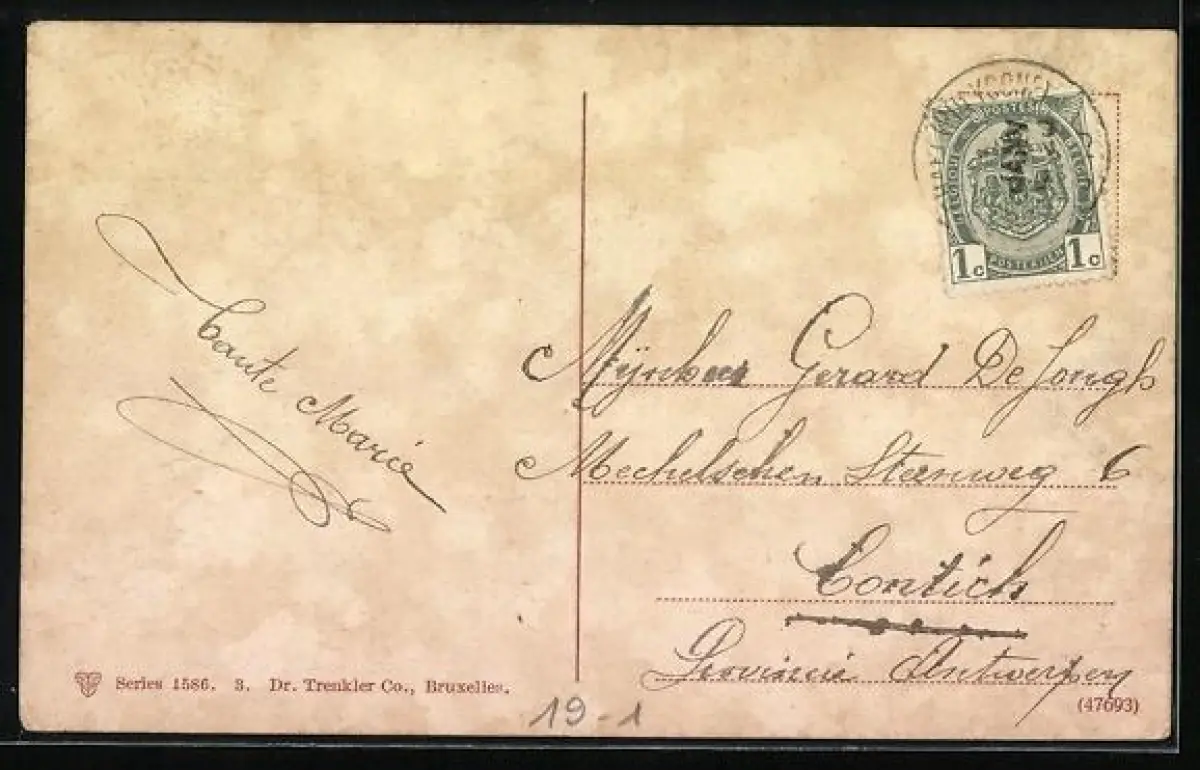 POSTES
BELGIQUE
1c 1c
JANV
Tante Marie
Mijnheer Gerard De Jongh
Mechelschen Steenweg 6
Contich
Provincie Antwerpen
Series 1586. 3. Dr. Trenkler Co., Bruxelles.
(47693)
19-1